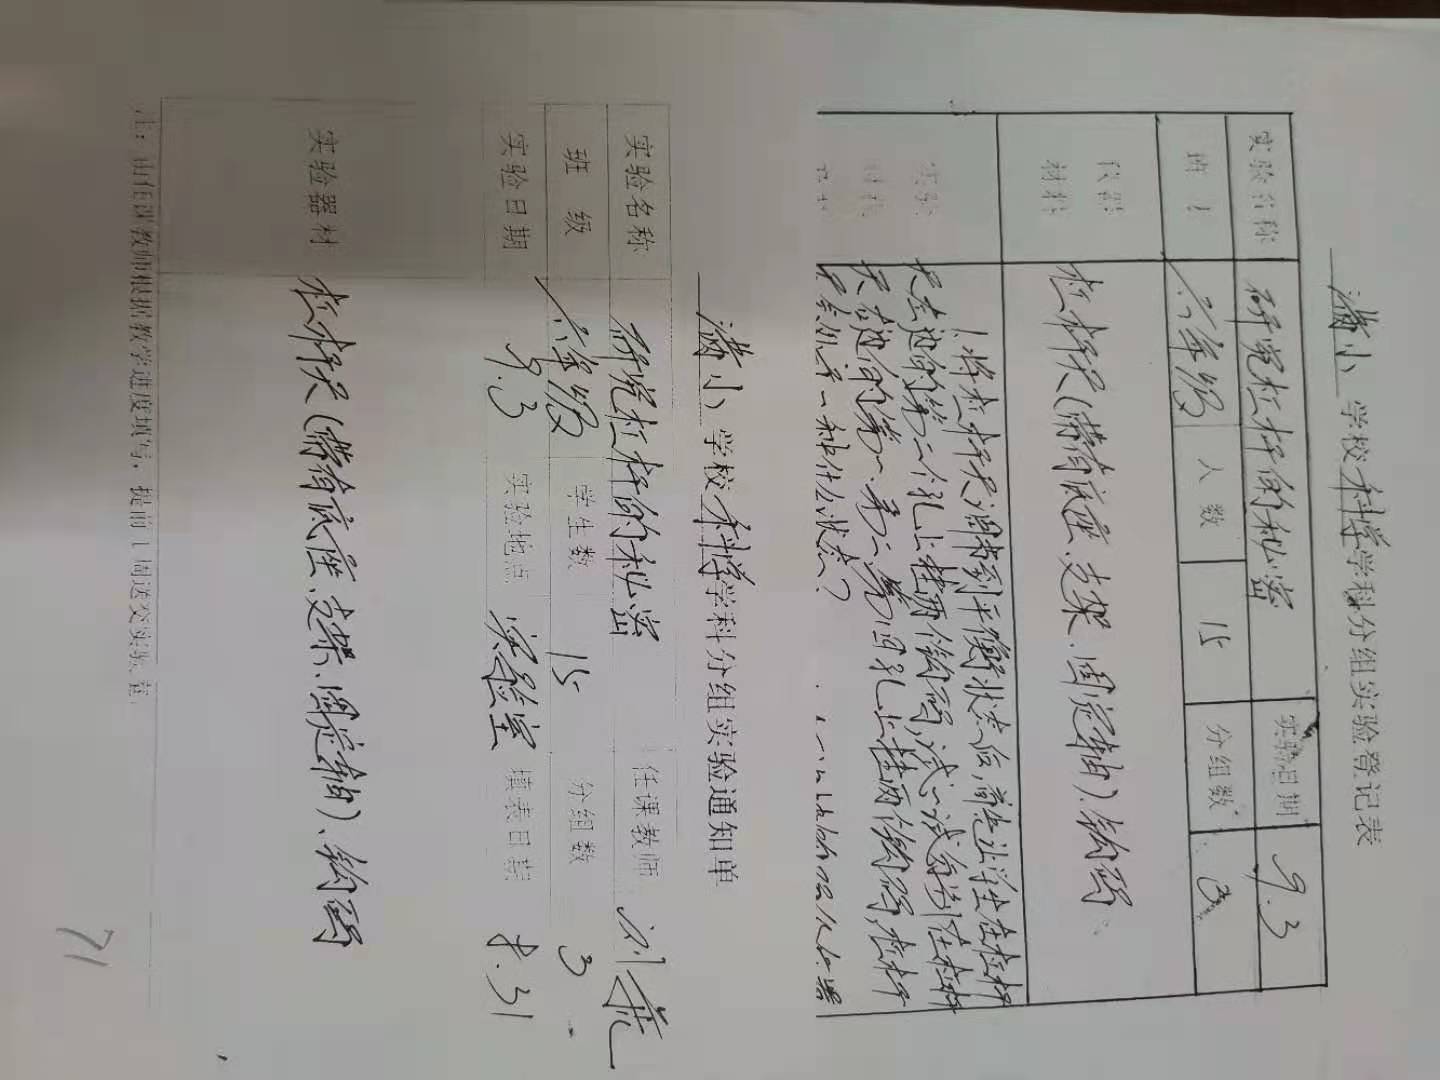 满小 学校 科学 学科分组实验登记表
实验名称 研究杠杆的秘密 实验日期 9.3
班 六年级 人数 15 分组数 3
仪器材料 杠杆尺(带有底座、支架、固定轴)、钩码
实验
1.将杠杆尺调节到平衡状态后,首先让学生在杠杆
尺左边的第二个孔上挂两个钩码,试一试分别在杠杆
尺右边的第一、第二、第四孔上挂两个钩码,杠杆
尺会出一种什么状态?
满小 学校 科学 学科分组实验通知单
实验名称 研究杠杆的秘密 任课教师 刘
班级 六年级 学生数 15 分组数 3
实验日期 9.3 实验地点 实验室 填表日期 8.31
实验器材 杠杆尺(带有底座、支架、固定轴)、钩码
注:由任课教师根据教学进度填写,提前1周送交实验室.
71